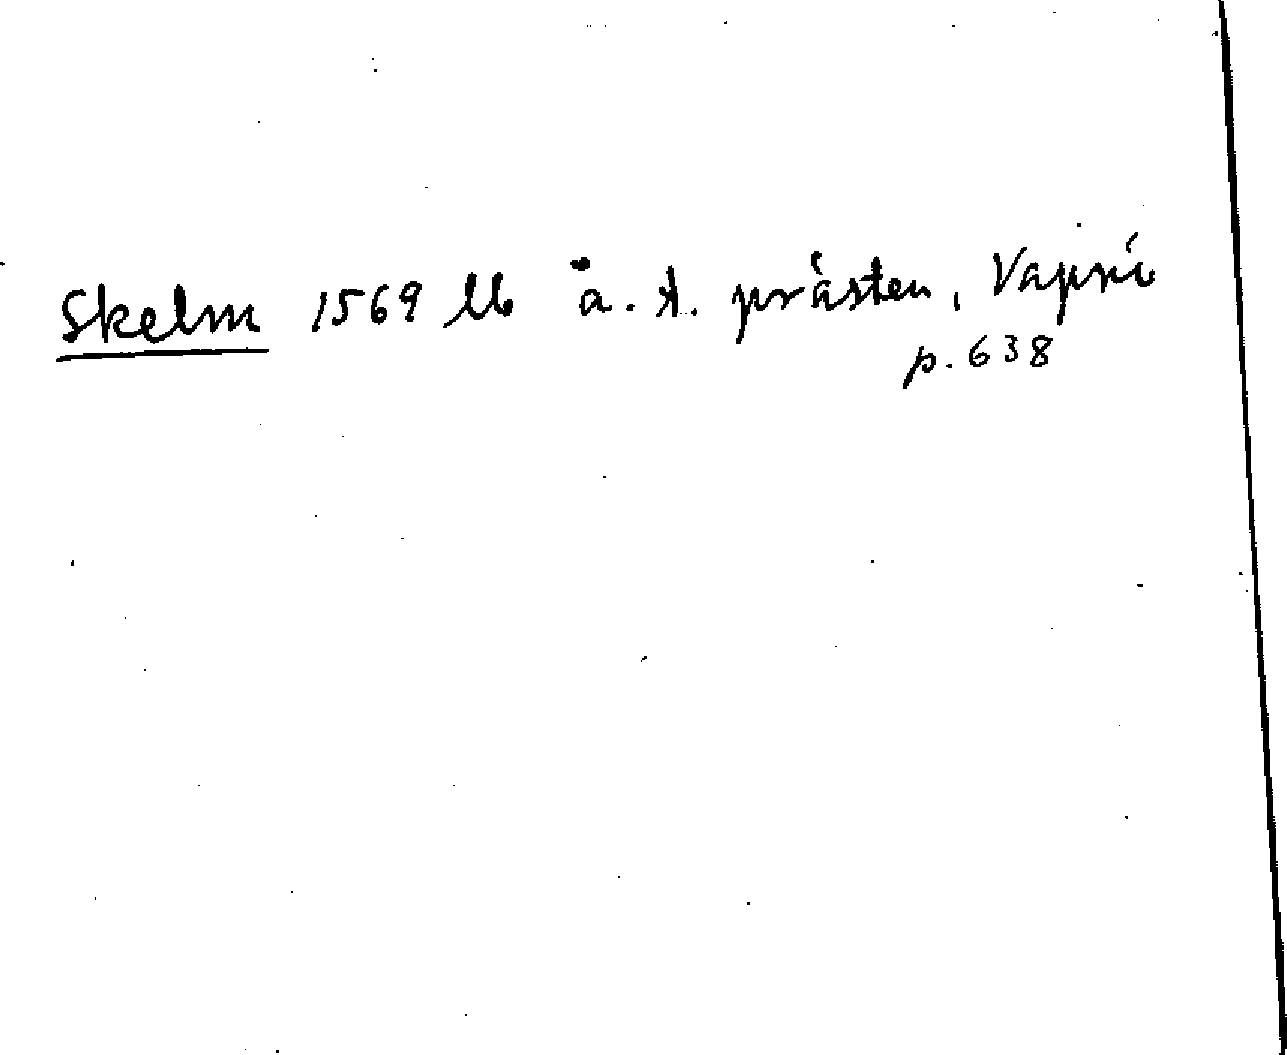 Skelm 1569 lb ä. t. prästen, Vapni
p. 638